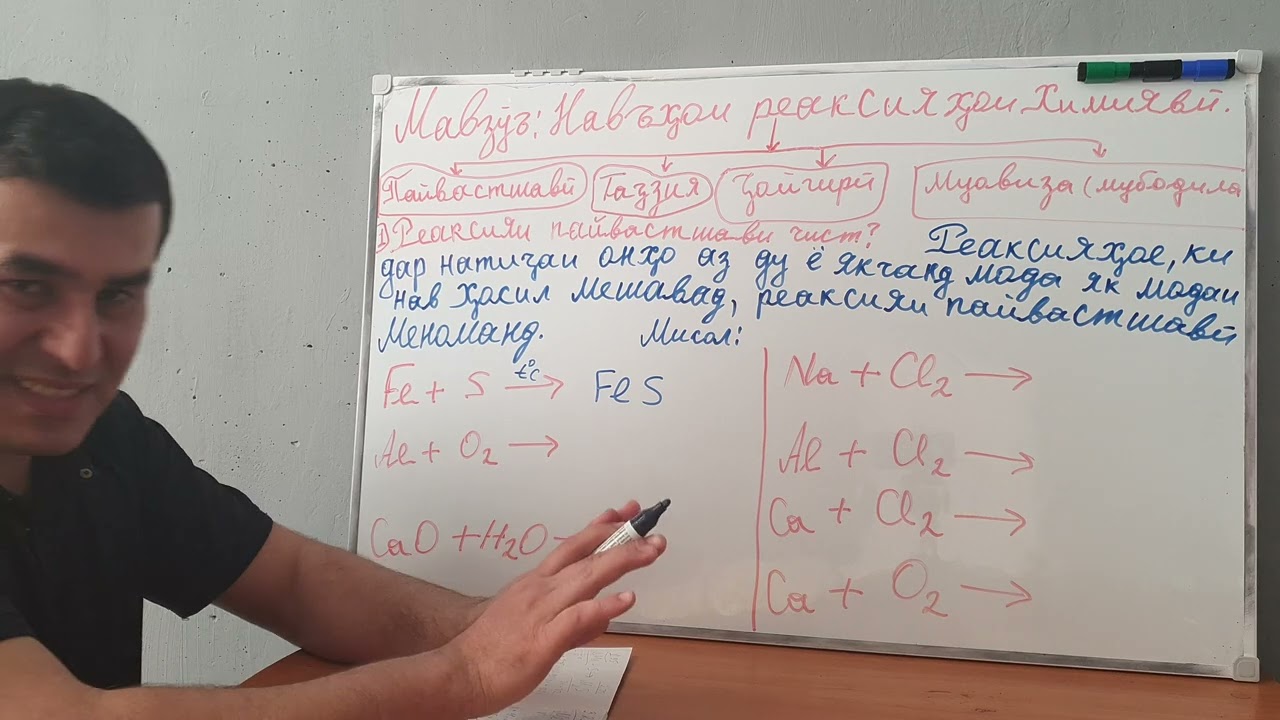 Мавзӯъ: Навъҳои реаксияҳои химиявӣ.
Пайвастшавӣ Таҷзия Ҷойгирӣ Муовиза (мубодила
1) Реаксияи пайвастшави чист? Реаксияҳое, ки
дар натиҷаи онҳо аз ду ё якчанд мода як модаи
нав ҳосил мешавад, реаксияи пайвастшавӣ
меноманд. Мисол:
Fe + S t°c → FeS
Al + O₂ →
CaO + H₂O
Na + Cl₂ →
Al + Cl₂ →
Ca + Cl₂ →
Ca + O₂ →